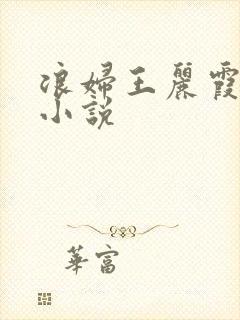 浪婦王麗霞
小說
華富